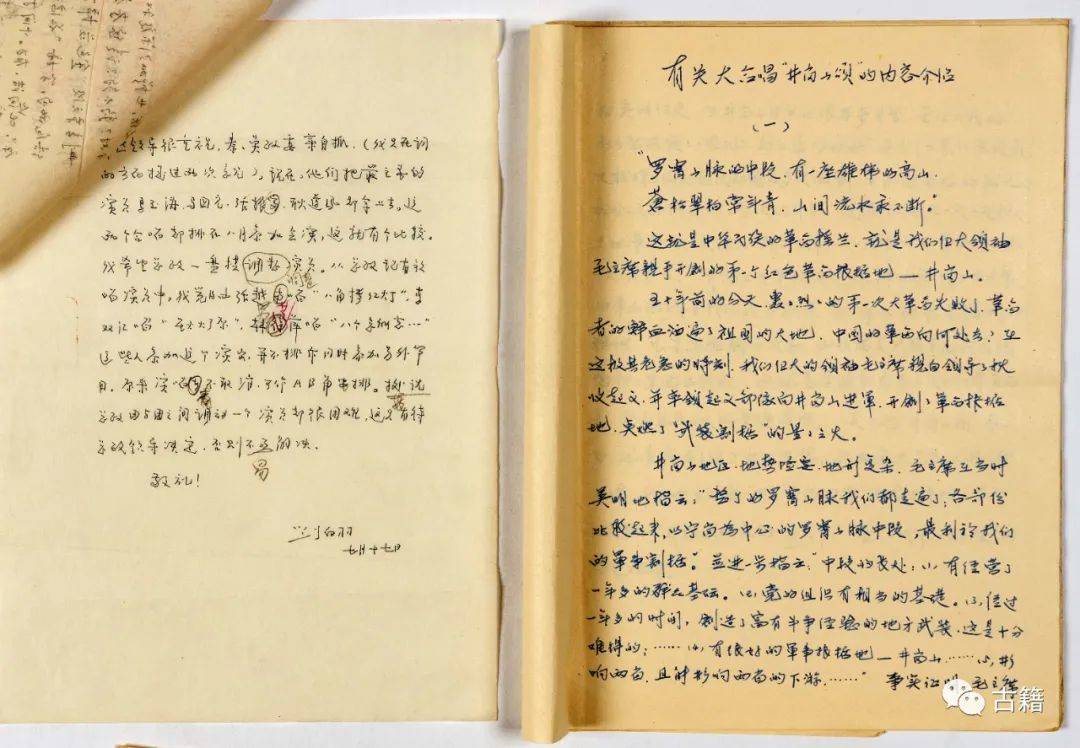 这领导很重视，李、吴政委亲自抓，（我只在词
的方面推进外次意见），现在，他们把最主要的
演员马玉涛、马国光、张振富、耿莲凤都拿出来。这
两个合唱都排在八月参加会演，这就有个比较。
我希望总政一盘棋调整演员。从总政现有独
唱演员中，我觉得由张越男唱“八角楼灯光”，李
双江唱“ ”， 唱“ ……”
这些人参加这个演出，并不排斥同时参加另外节
目，原来演唱 不取消，可作AB角安排。据说
总政团与团之间调动一个演员都很困难，这只有待
总政领导决定，否则不易解决。
敬礼！
刘白羽
七月十七日
有关大合唱“井岗山颂”的内容介绍
（一）
“罗霄山脉的中段，有一座雄伟的高山。
苍松翠柏常年青，山间流水永不断。”
这就是中华民族的革命摇兰，就是我们伟大领袖
毛主席亲手开创的第一个红色革命根据地—井岗山。
五十年前的今天，轰轰烈烈的第一次大革命失败了，革命
者的鲜血洒遍了祖国的大地，中国的革命向何处去？在
这极其危急的时刻，我们伟大的领袖毛主席亲自领导了秋
收起义，并率领起义部队向井岗山进军，开创了革命根据
地，点燃了“武装割据”的星星之火。
井岗山地区，地势险要，地形复杂，毛主席在当时
英明地指出：“整个的罗霄山脉我们都走遍了；各部份
比较起来，以宁岗为中心的罗霄山脉中段，最利于我们
的军事割据。”并进一步指出：“中段的长处：⑴有经营了
一年多的群众基础。⑵党的组织有相当的基础。⑶经过
一年多的时间，创造了富有斗争经验的地方武装，这是十分
难得的；……⑷有很好的军事根据地—井岗山……⑸影
响两省，且能影响两省的下游，……”事实证明，毛主席
古籍